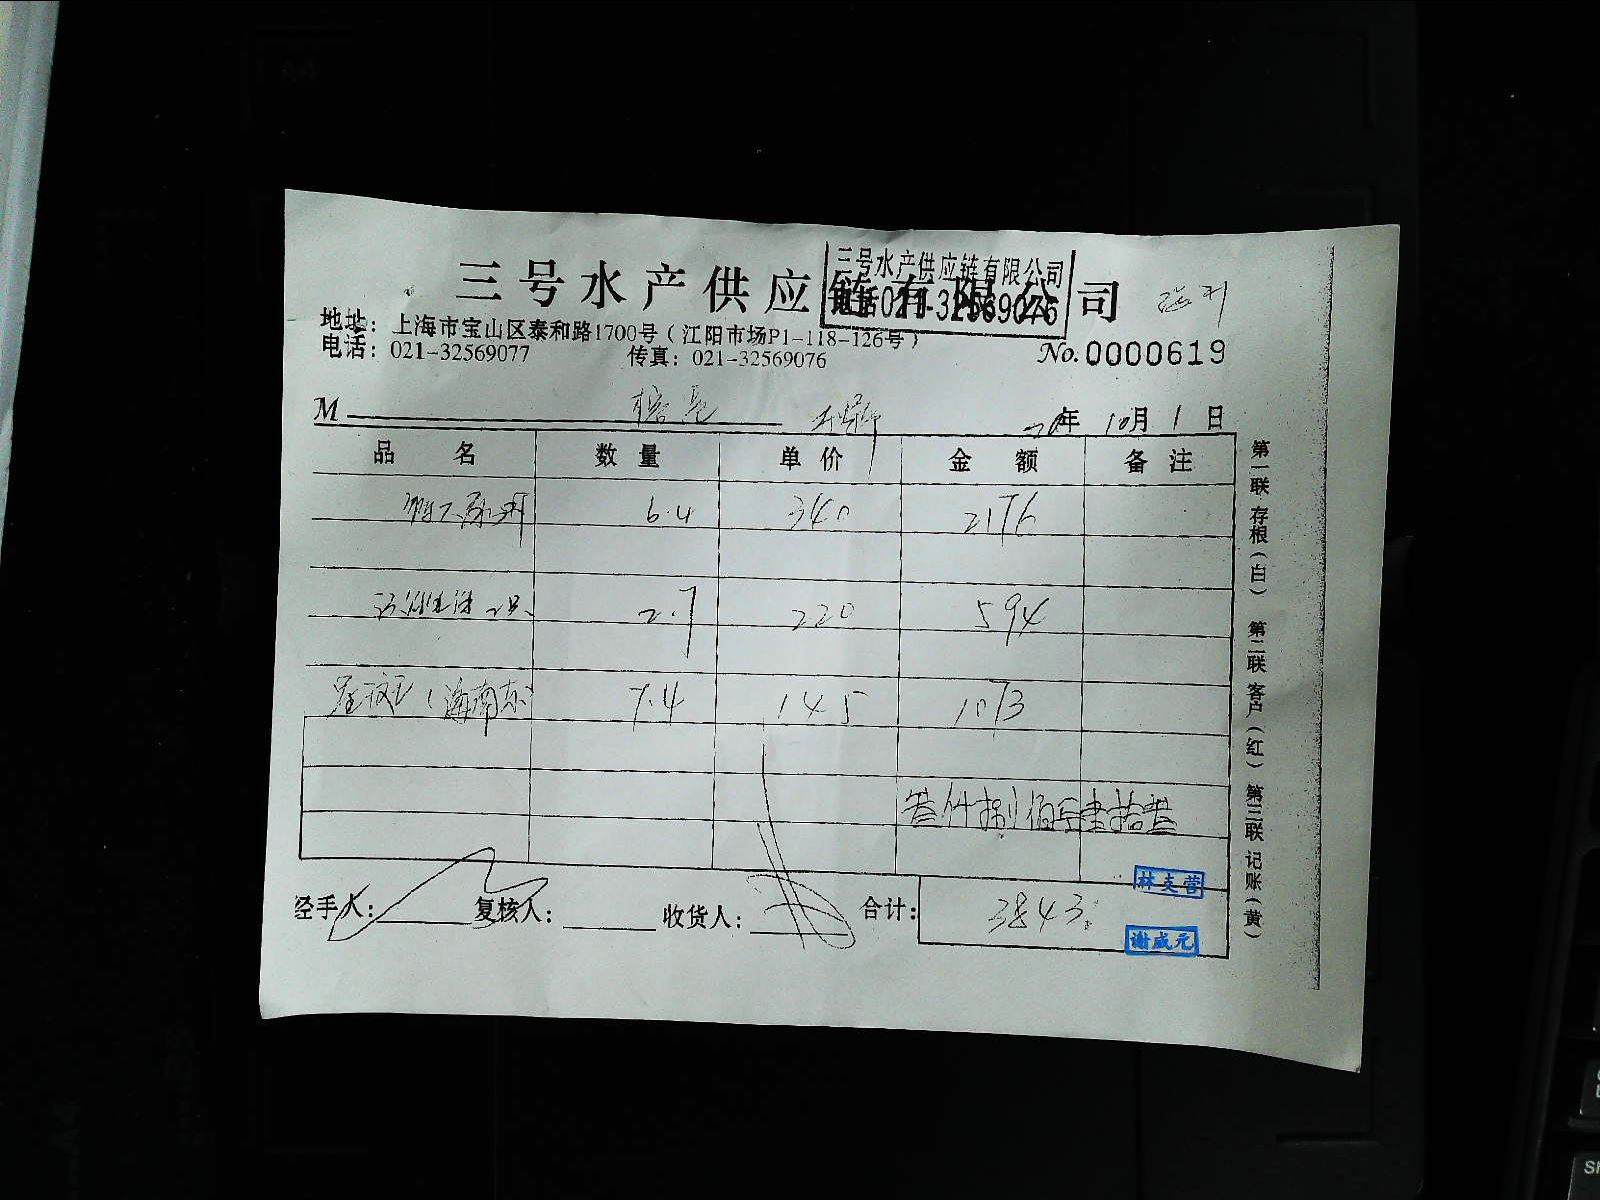 三号水产供应链有限公司
三号水产供应链有限公司
电话021-32569076
地址：上海市宝山区泰和路1700号（江阳市场P1-118-126号）
电话：021-32569077 传真：021-32569076
No.0000619
M
20年 10月 1日
品名 数量 单价 金额 备注
6.4 340 2176
2.7 220 594
（海南东 7.4 145 1073
叁仟捌佰肆拾叁
经手人： 复核人： 收货人： 合计： 3843
谢咸元
第一联 存根（白） 第二联 客户（红） 第三联 记账（黄）